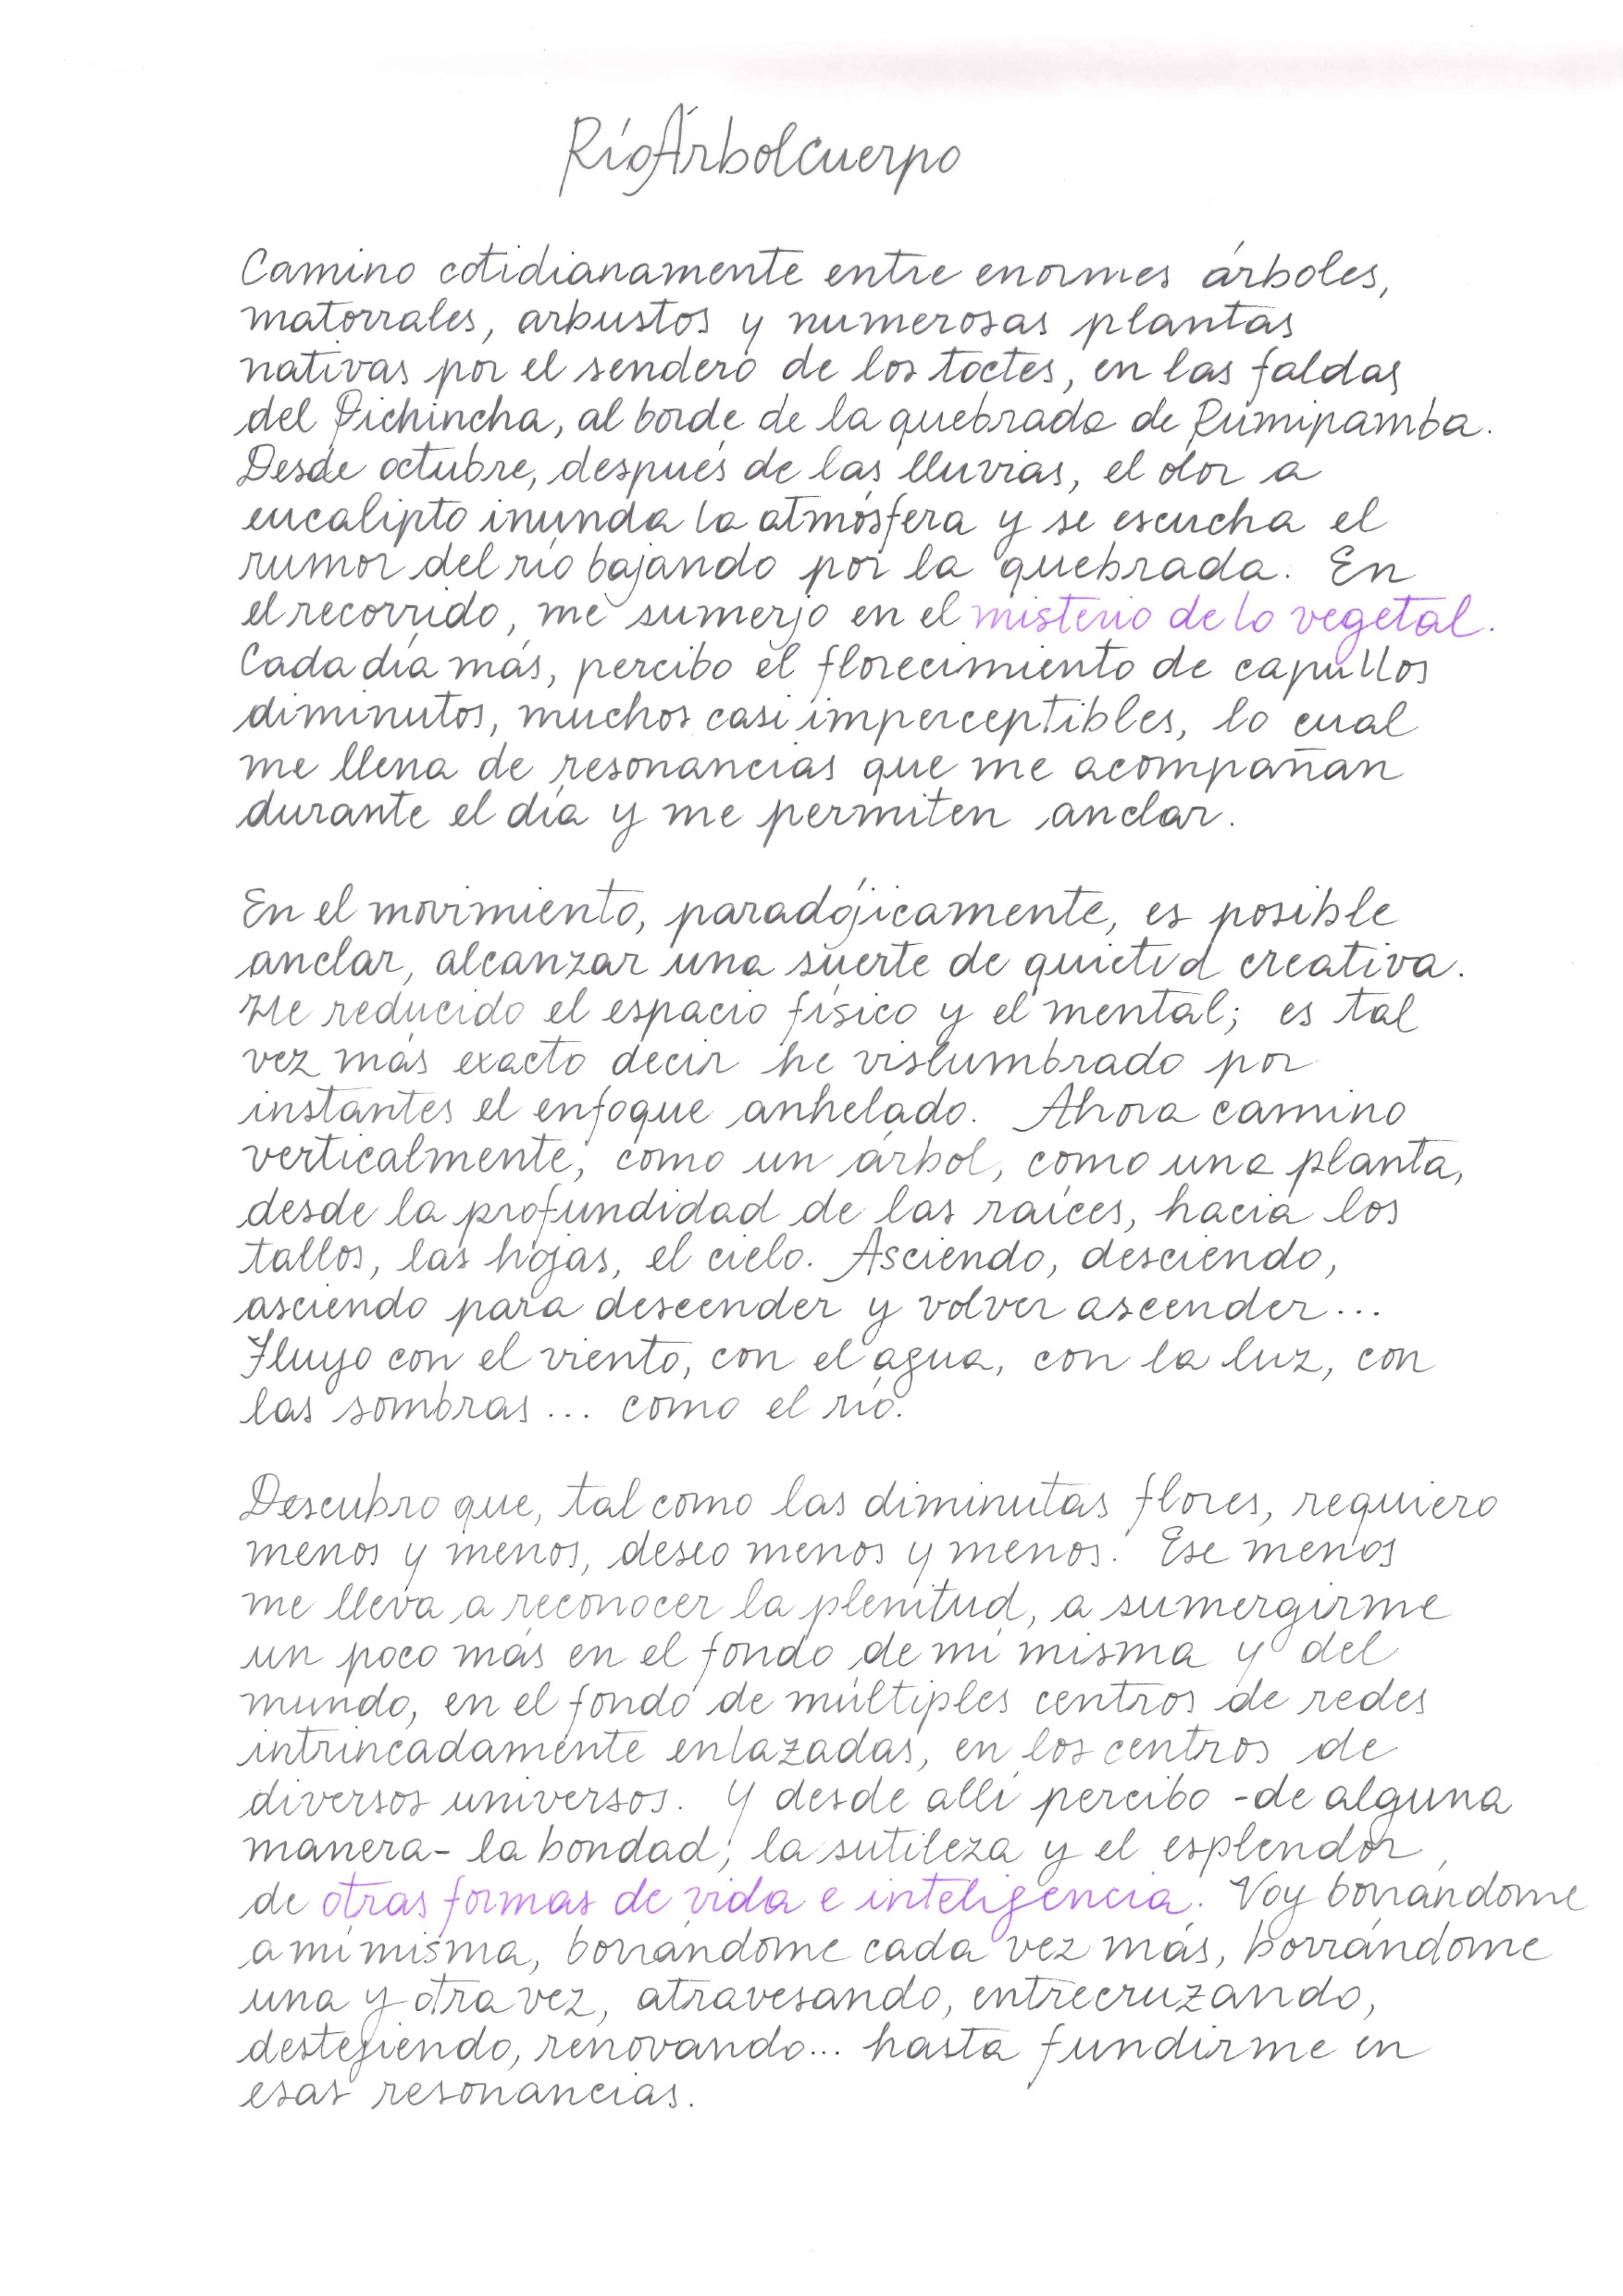 RíoÁrbolcuerpo
Camino cotidianamente entre enormes árboles,
matorrales, arbustos y numerosas plantas
nativas por el sendero de los toctes, en las faldas
del Pichincha, al borde de la quebrada de Rumipamba.
Desde octubre, después de las lluvias, el olor a
eucalipto inunda la atmósfera y se escucha el
rumor del río bajando por la quebrada. En
el recorrido, me sumerjo en el misterio de lo vegetal.
Cada día más, percibo el florecimiento de capullos
diminutos, muchos casi imperceptibles, lo cual
me llena de resonancias que me acompañan
durante el día y me permiten anclar.
En el movimiento, paradójicamente, es posible
anclar, alcanzar una suerte de quietud creativa.
He reducido el espacio físico y el mental; es tal
vez más exacto decir he vislumbrado por
instantes el enfoque anhelado. Ahora camino
verticalmente, como un árbol, como una planta,
desde la profundidad de las raíces, hacia los
tallos, las hojas, el cielo. Asciendo, desciendo,
asciendo para descender y volver ascender...
Fluyo con el viento, con el agua, con la luz, con
las sombras... como el río.
Descubro que, tal como las diminutas flores, requiero
menos y menos, deseo menos y menos. Ese menos
me lleva a reconocer la plenitud, a sumergirme
un poco más en el fondo de mí misma y del
mundo, en el fondo de múltiples centros de redes
intrincadamente enlazadas, en los centros de
diversos universos. Y desde allí percibo -de alguna
manera- la bondad, la sutileza y el esplendor
de otras formas de vida e inteligencia. Voy borrándome
a mí misma, borrándome cada vez más, borrándome
una y otra vez, atravesando, entrecruzando,
destejiendo, renovando... hasta fundirme en
esas resonancias.